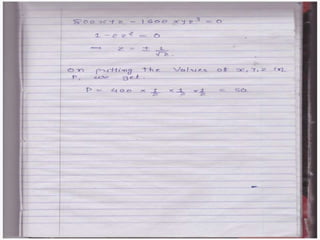 800xyz - 1600xyz³ = 0
1 - 2z² = 0
→ z = ± 1/√2.
On putting the values of x, y, z in
P, we get.
P = 400 × 1/2 × 1/2 × 1/2 = 50